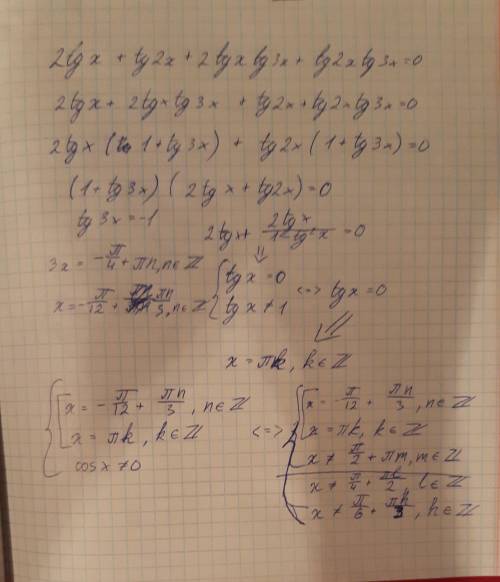 2tgx + tg2x + 2tgx tg3x + tg2x tg3x = 0
2tgx + 2tgx tg3x + tg2x + tg2x tg3x = 0
2tgx (1 + tg3x) + tg2x (1 + tg3x) = 0
(1 + tg3x) (2tgx + tg2x) = 0
tg3x = -1
2tgx + 2tgx/(1 - tg²x) = 0
3x = -π/4 + πn, n∈ℤ
x = -π/12 + πn/3, n∈ℤ
{ tgx = 0
tgx ≠ 1 <=> tgx = 0
x = πk, k∈ℤ
{ [ x = -π/12 + πn/3, n∈ℤ
x = πk, k∈ℤ
cosx ≠ 0
<=> { [ x = -π/12 + πn/3, n∈ℤ
x = πk, k∈ℤ
x ≠ π/2 + πm, m∈ℤ
x ≠ π/4 + πl/2, l∈ℤ
x ≠ π/6 + πh/3, h∈ℤ